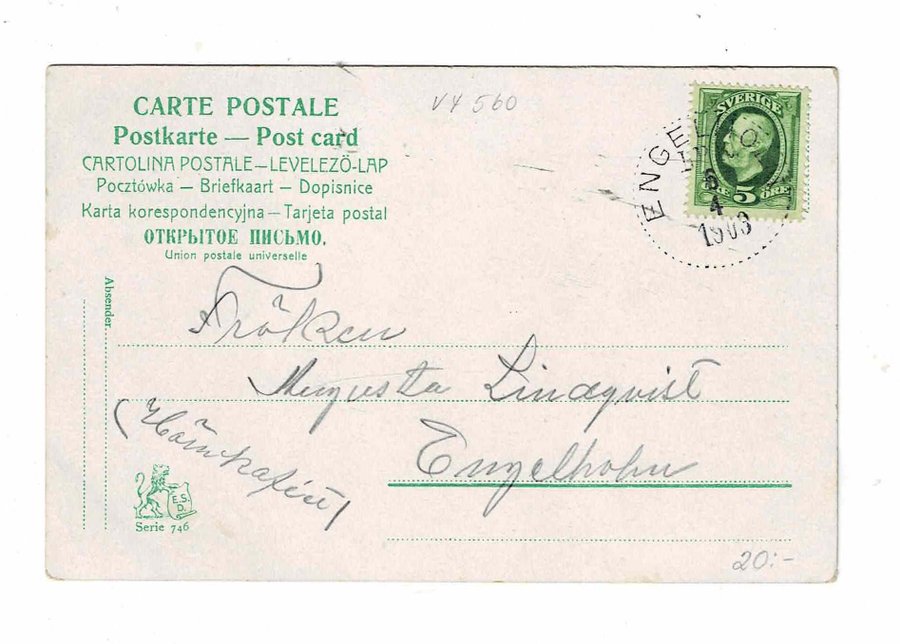 CARTE POSTALE
Postkarte — Post card
CARTOLINA POSTALE — LEVELEZŐ-LAP
Pocztówka — Briefkaart — Dopisnice
Karta korespondencyjna — Tarjeta postal
ОТКРЫТОЕ ПИСЬМО.
Union postale universelle
V4 560
SVERIGE
5 ÖRE
ENGEL
4
1903
Absender.
Fröken
Augusta Lindqvist
Engelholm
E.S.
D.
Serie 746
20:-